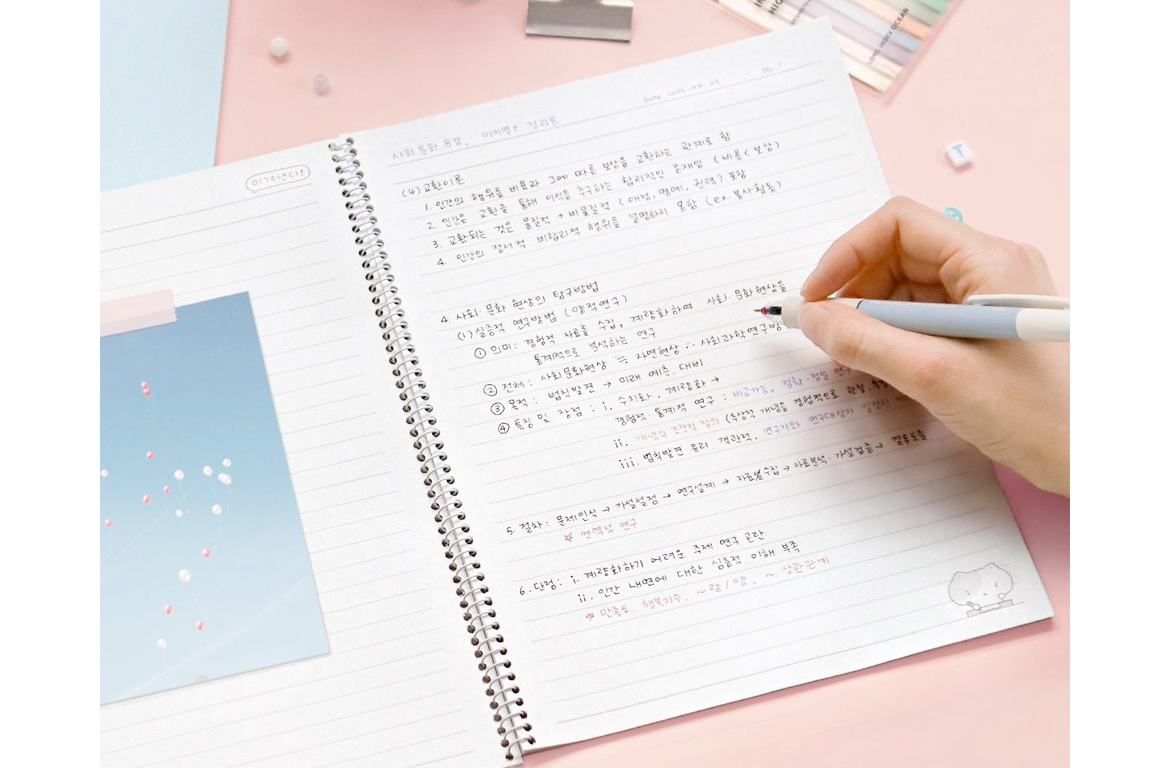 이겨낸다!
Date. No. 1
사회문화 8강. 개념 정리본
(4) 교환이론
1. 인간의 행위를 비용과 그에 따른 보상을 교환하는 관계로 함
2. 인간은 교환을 통해 이익을 추구하는 합리적인 존재임 (비용<보상)
3. 교환되는 것은 물질적 + 비물질적 (애정, 명예, 권력) 포함
4. 인간의 정서적 비합리적 행위를 설명하지 못함 (ex. 봉사활동)
4. 사회 문화 현상의 탐구방법
(1) 실증적 연구방법 (양적연구)
① 의미: 경험적 자료를 수집, 계량화하며 사회.문화현상을
통계적으로 분석하는 연구
② 전제: 사회문화현상 ≒ 자연현상 ∴ 사회과학연구방
③ 목적: 법칙발견 → 미래 예측. 대비
④ 특징 및 장점: i. 수치화, 계량화 →
경험적 통계적 연구 : 비교가능, 정확·정밀 연구
ii. 개념의 조작적 정의 (추상적 개념을 경험적으로 관찰.
iii. 법칙발견 유리. 객관적. 연구자와 연구대상자
5. 절차: 문제인식 → 가설설정 → 연구설계 → 자료수집 → 자료분석·가설검증 → 결론도출
☆ 연역적 연구
6. 단점: i. 계량화하기 어려운 주제 연구 곤란
ii. 인간 내면에 대한 심층적 이해 부족
☆ 만족도. 행복지수. ~량/양. ~ 상관관계
LONG INDEX OCEAN
T